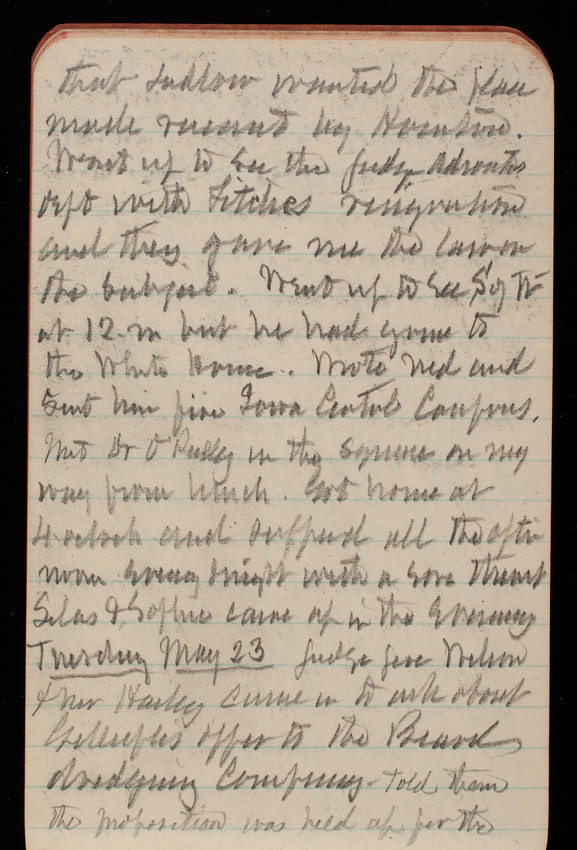 that Ludlow wanted the place
made vacant by Houston.
Went up to see the Judge Advocates
dept with Fitches resignation
and they gave me the law on
the subject. Went up to see Sey of W
at 12. m but he had gone to
the White House. Wrote Ned and
sent him five Iowa Central Coupons.
Met Dr O'Reilly in the square on my
way from lunch. Got home at
4 oclock and suffered all the after
noon evening & night with a sore throat
Silas & Sophie came up in the evening
Tuesday May 23 Judge Wilson
& Mr came in to ask about
Gillespies offer to the
dredging Company. Told them
the proposition was held up for the